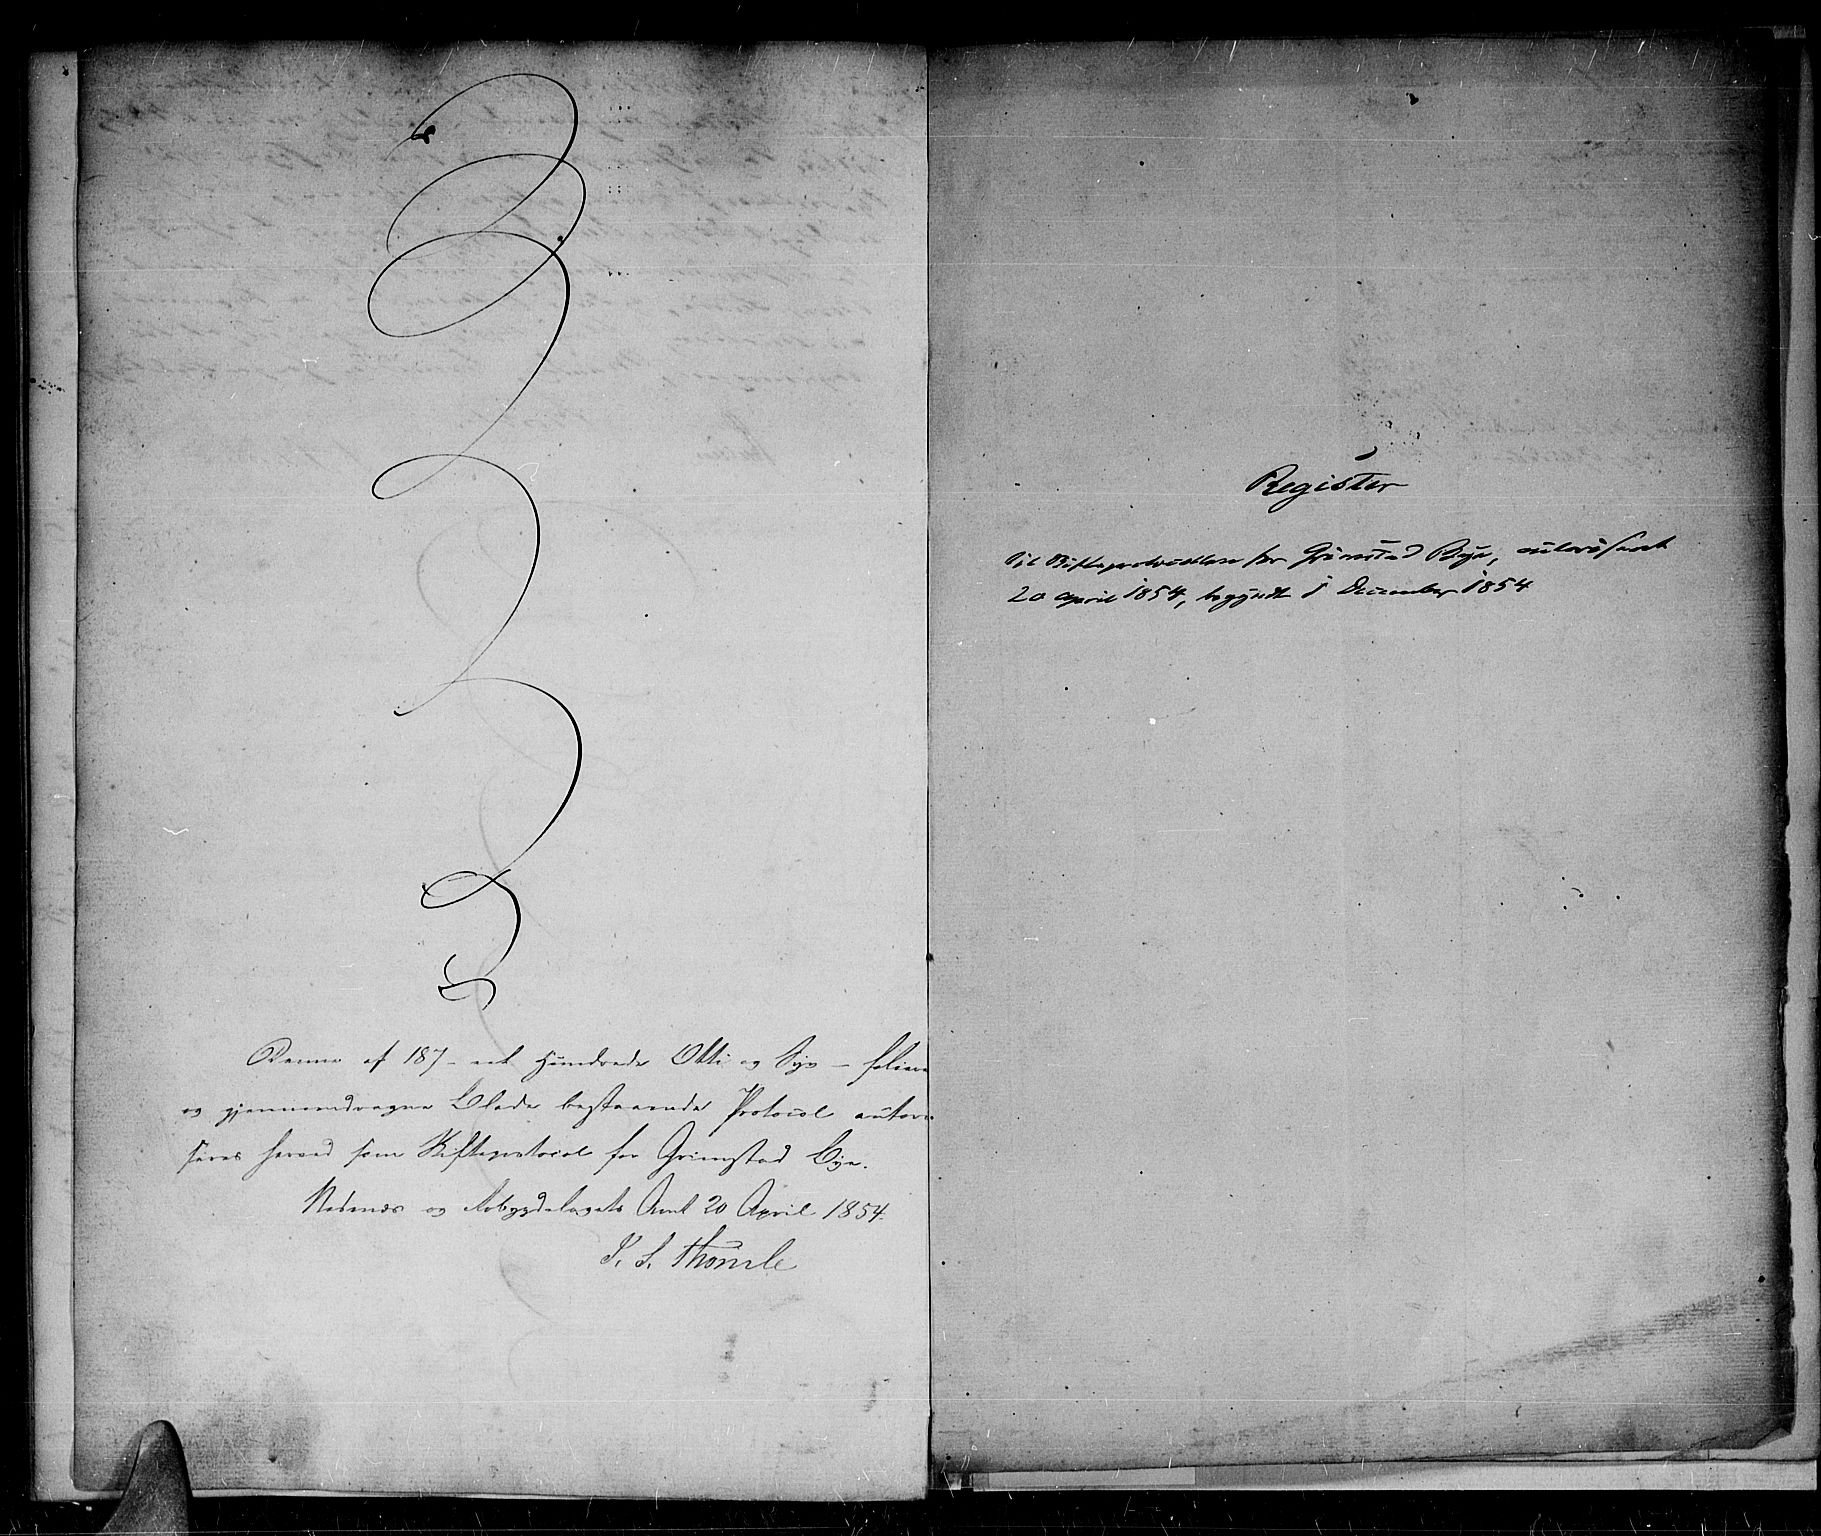 Denne af 187 - et Hundrede Otti og Syv - folierede
og gjennemdragne Blade bestaaende Protocol autori-
seres herved som Skifteprotocol for Grimstad Bye.
Nedenæs og Robygdelagets Amt 20 April 1854.
Thomle
Register
til Skifteprotocollen for Grimstad Bye, autoriseret
20 april 1854, begyndt 1 December 1854